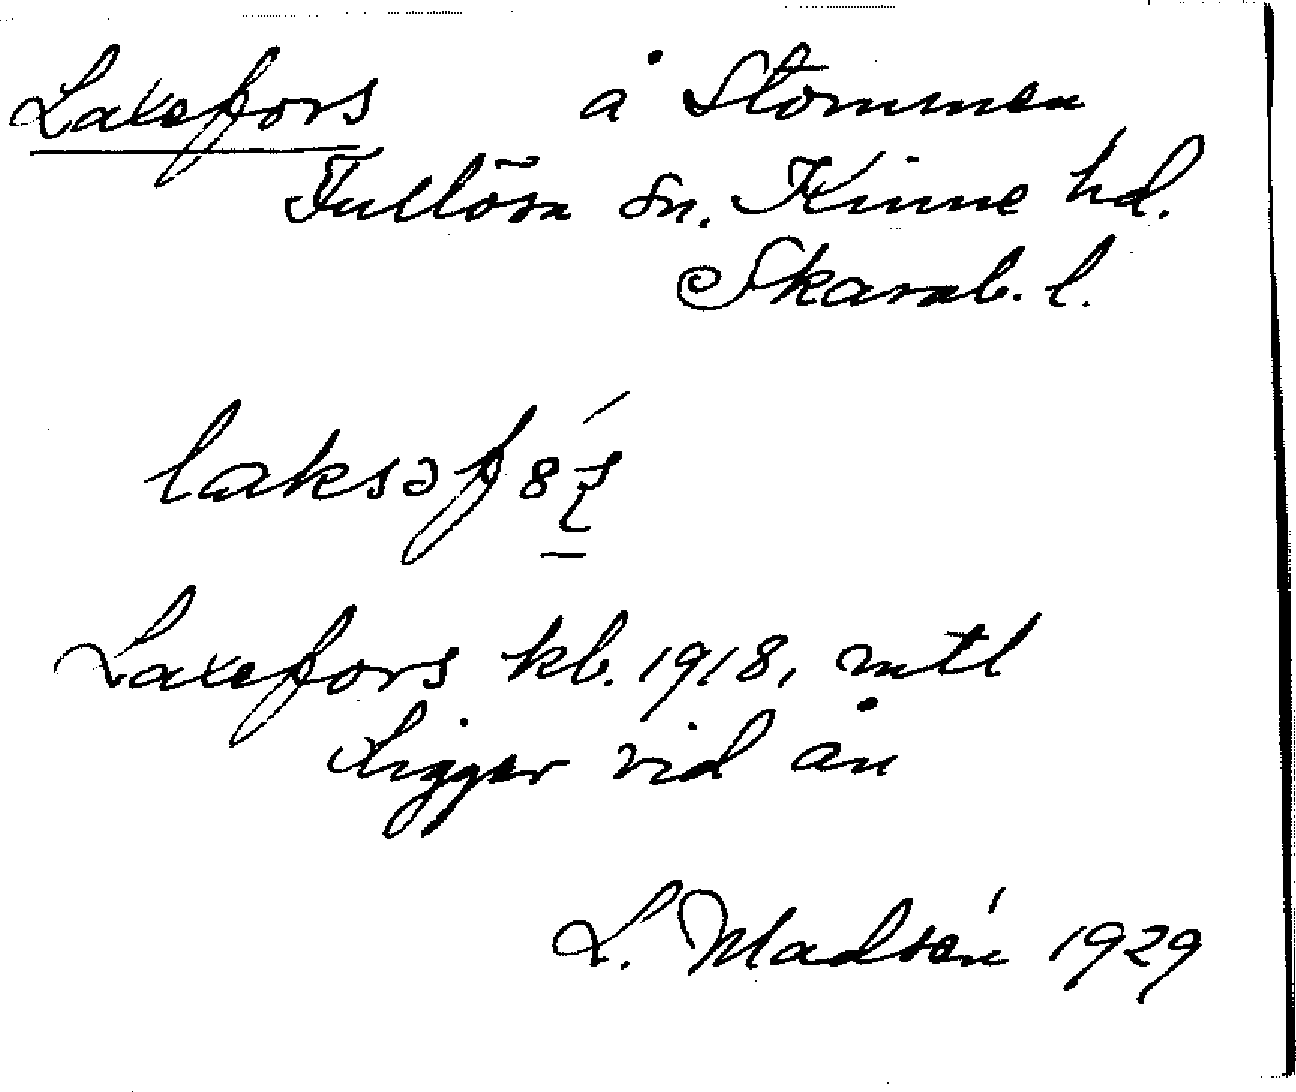 Laxefors å Stommen
Fullösa sn. Kinne hd.
Skarab. l.
laksəf8
Laxefors kb. 1918, mtl
Ligger vid ån
L. Madsén 1929